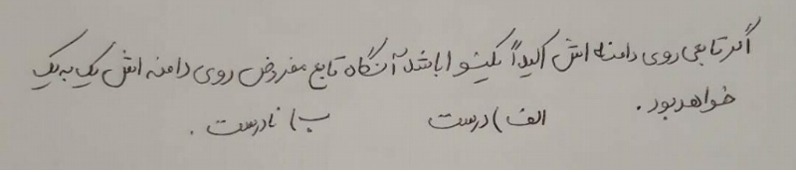 اگر تابعی روی دامنه اش اکیداً یکنوا باشد آنگاه تابع مفروض روی دامنه اش یک به یک
خواهد بود .
الف) درست ب) نادرست .